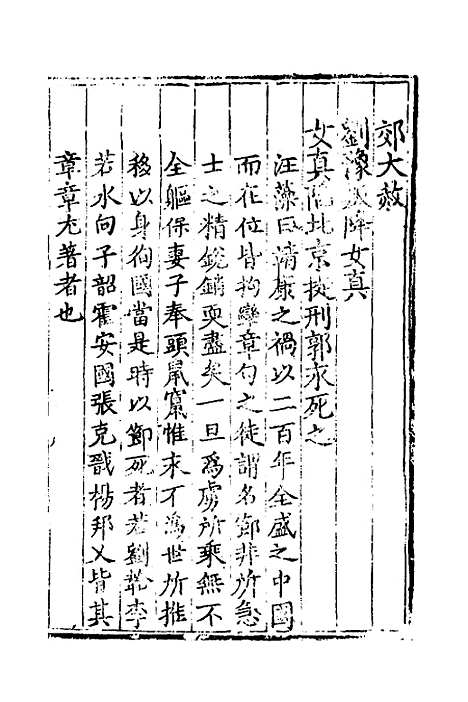 郊大赦
劉豫以降女真
女真陷北京提刑郭永死之
汪藻曰靖康之禍以二百年全盛之中國
而在位皆拘攣章句之徒謂名節非所急
士之精銳銷耎盡矣一旦為虜所乘無不
全軀保妻子奉頭鼠竄惟求不為世所推
移以身徇國當是時以節死者若劉韐李
若水向子韶霍安國張克戩楊邦乂皆其
章章尤著者也